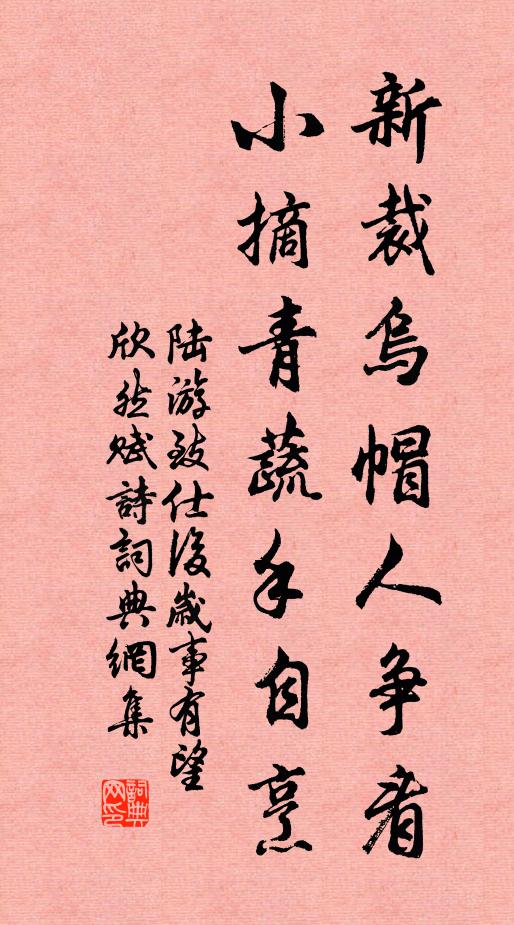 新裁烏帽人争看
小摘青蔬手自烹
陆游致仕後歲事有望
欣然赋詩詞典網集
詞典网印